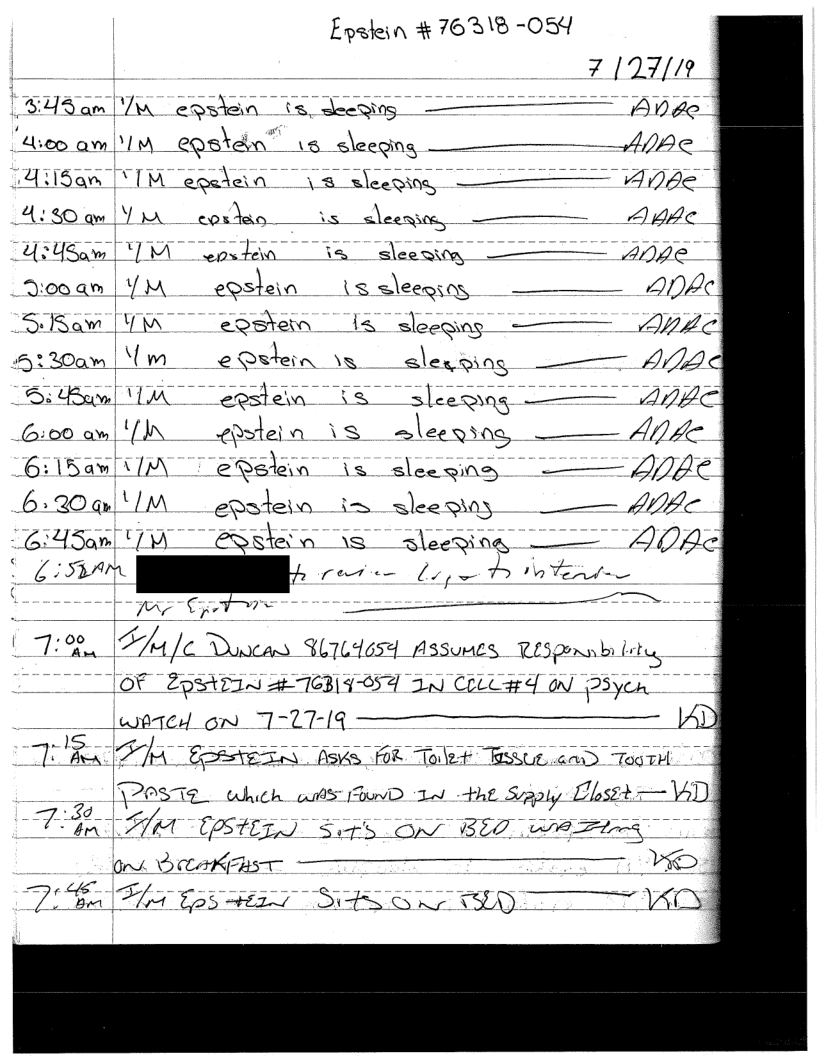 Epstein # 76318-054
7/27/19
3:45 am I/M epstein is sleeping ADAC
4:00 am I/M epstein is sleeping ADAC
4:15am I/M epstein is sleeping ADAC
4:30 am I/M epstein is sleeping ADAC
4:45am I/M epstein is sleeping ADAC
5:00 am I/M epstein is sleeping ADAC
5:15am I/M epstein is sleeping ADAC
5:30am I/m epstein is sleeping ADAC
5:45am I/M epstein is sleeping ADAC
6:00 am I/M epstein is sleeping ADAC
6:15am I/M epstein is sleeping ADAC
6:30 am I/M epstein is sleeping ADAC
6:45am I/M epstein is sleeping ADAC
6:52AM to review logs + to interview
Mr Epstein
7:00 AM I/M/C DUNCAN 86764054 ASSUMES RESponsibility
OF EpSTEIN # 76318-054 IN CELL #4 ON psych
WATCH ON 7-27-19 KD
7:15 AM I/M EPSTEIN ASKS FOR Toilet TISSUE and TOOTH
PASTE which WAS FOUND IN the Supply Closet KD
7:30 AM I/M EPSTEIN Sit's ON BED WAITing
ON BREAKFAST KD
7:45 AM I/M EpSTEIN Sits ON BED KD